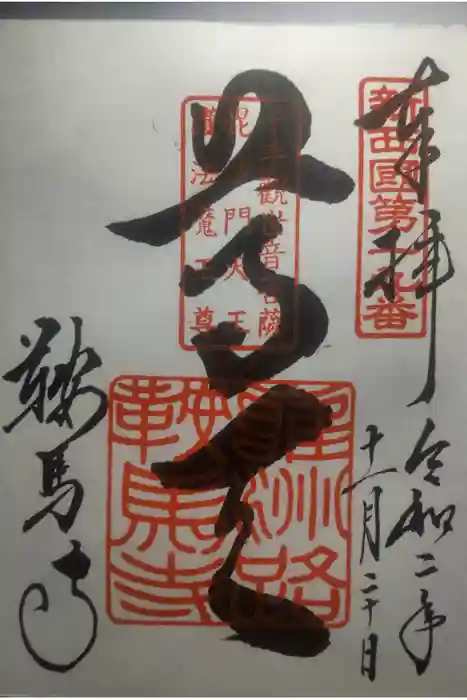 奉拝
新西國第十九番
令和二年
十一月二十日
尊天
千手觀世音菩薩
毘沙門天王
護法魔王尊
雍州路
鞍馬寺
鞍馬寺